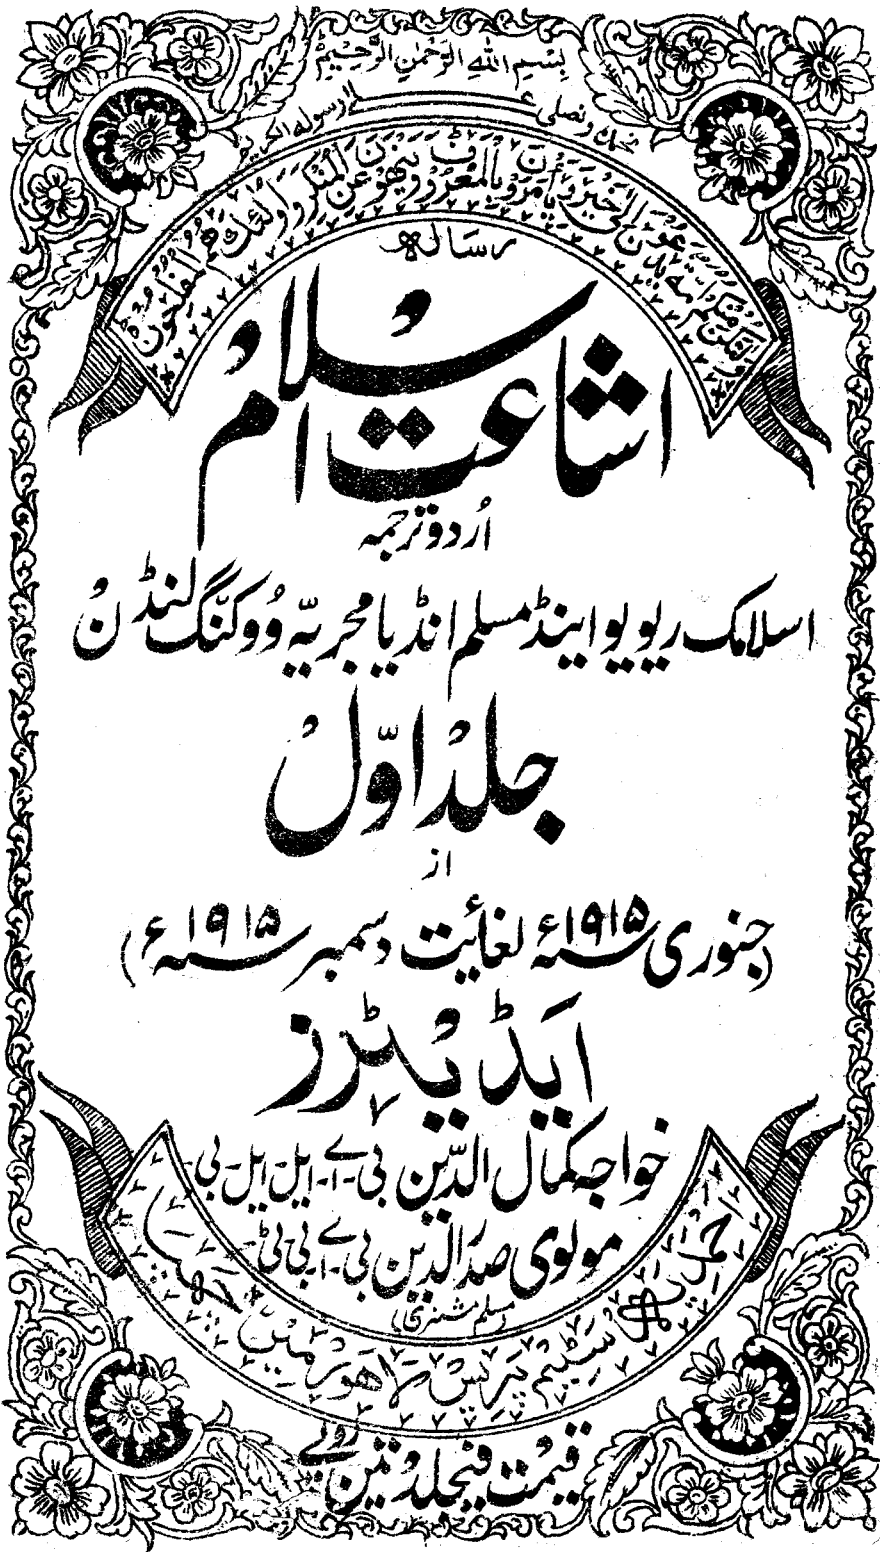 بسم الله الرحمن الرحیم
نحمدہ ونصلی علی رسولہ الکریم
ولتکن منکم امۃ یدعون الی الخیر ویأمرون بالمعروف وینھون عن المنکر واولئک ھم المفلحون
رسالہ
اشاعت اسلام
اُردو ترجمہ
اسلامک ریویو اینڈ مسلم انڈیا مجریہ وُوکنگ لنڈن
جلد اوّل
از
(جنوری ۱۹۱۵ء لغائیت دسمبر ۱۹۱۵ء)
ایڈیٹرز
خواجہ کمال الدّین بی۔اے۔ایل۔ایل۔بی
مولوی صدرالدین بی۔اے۔بی۔ٹی
(مسلم مشنری)
سٹیم پریس لاہور میں
قیمت فیجلد تین روپے